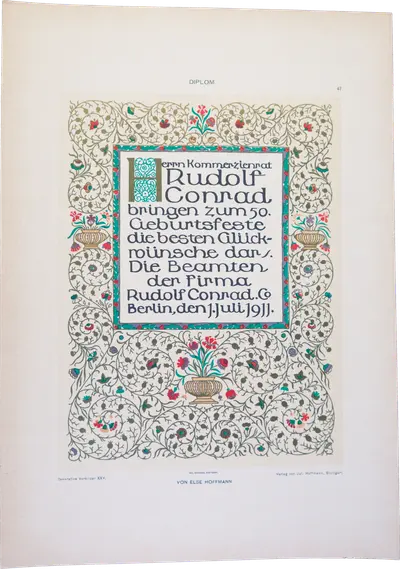 DIPLOM
47
Herrn Kommerzienrat
Rudolf
Conrad
bringen zum 50.
Geburtsfeste
die besten Glück-
wünsche dar.
Die Beamten
der Firma
Rudolf Conrad. Co
Berlin, den 1. Juli 1911.
Dekorative Vorbilder XXV.
VON ELSE HOFFMANN
Verlag von Jul. Hoffmann, Stuttgart